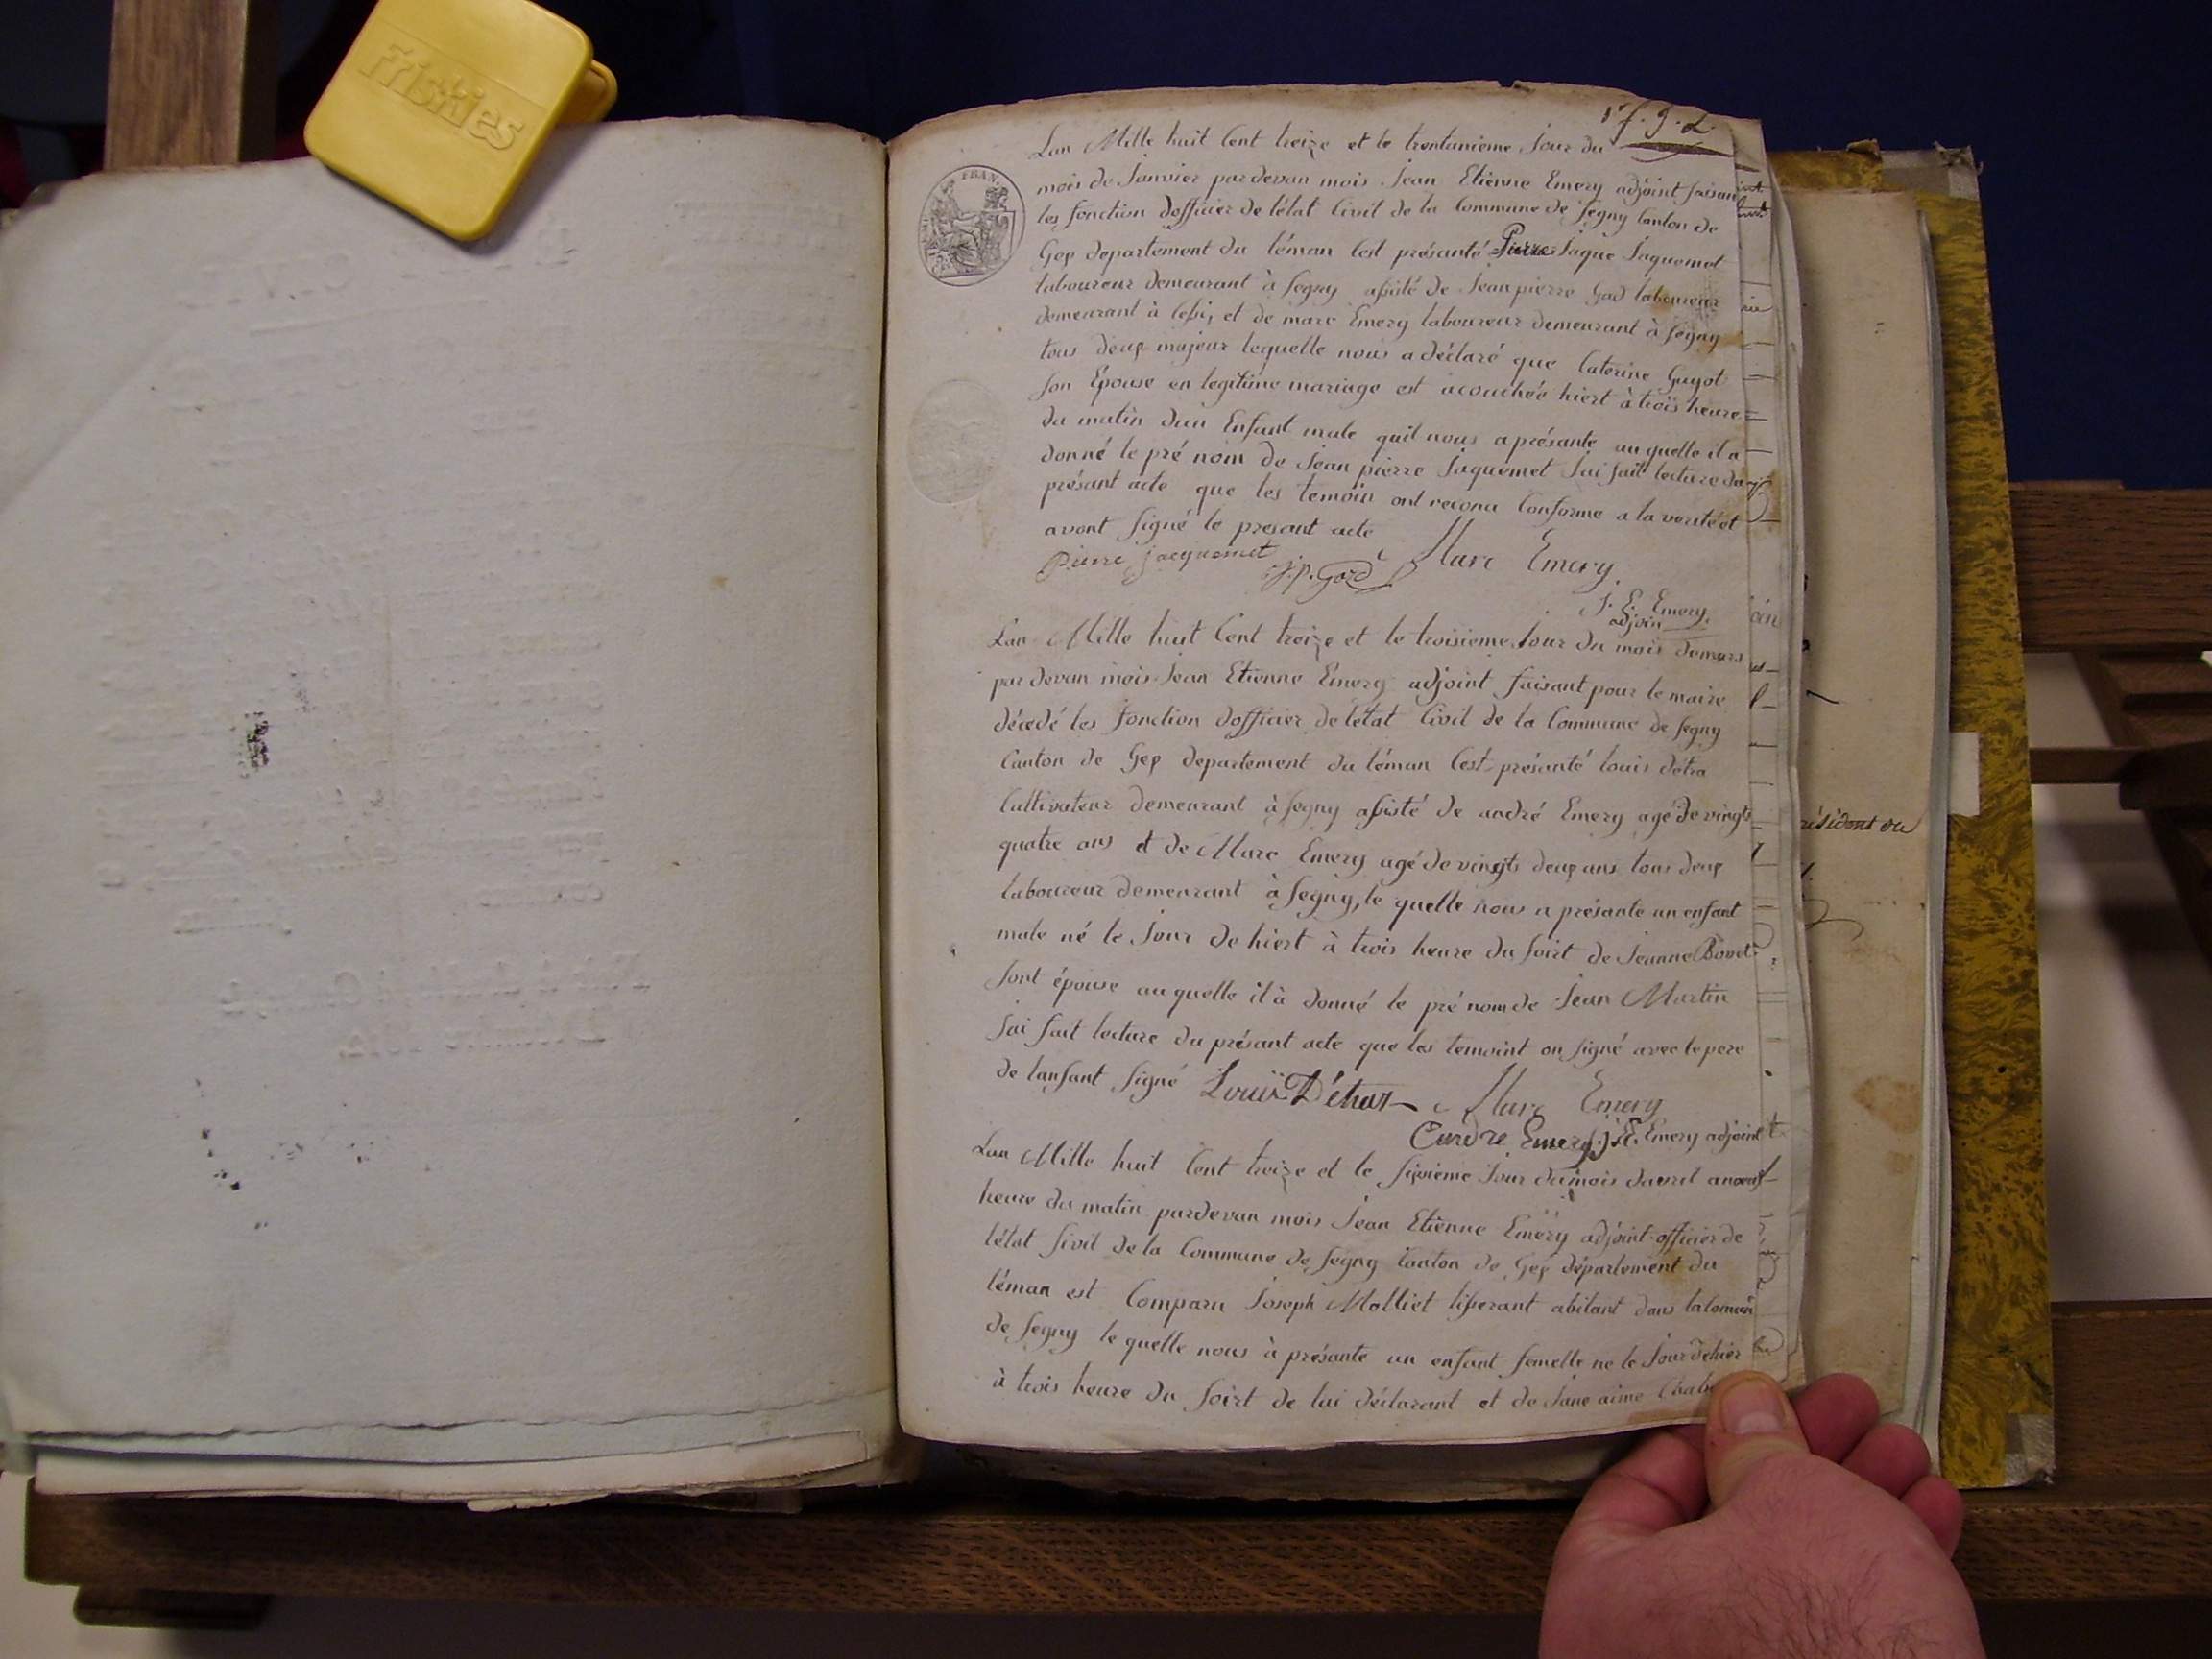 Friskies
Lan Mille huit Cent treize et le trentunieme Jour du
mois de Janvier pardevan mois Jean Etienne Emery adjoint faisant
les fonction dofficier de létat Civil de la Commune de Segny Canton de
Gex departement du léman Cest présanté Pierre Jaque Jaquemet
laboureur demeurant à Segny assisté de Jean pierre God laboureur
demeurant à Cessy et de marc Emery laboureur demeurant à Segny
tous deux majeur lequelle nous a déclaré que Caterine Guyot
son Epouse en legitime mariage est acouchée hiert à trois heure
du matin dun Enfant male quil nous a présante auquelle il a
donné le pré nom de Jean pierre Jaquemet Jai fait lecture du
présant acte que les temoin ont reconu Conforme a la verité et
avont signé le presant acte
Pierre jacquemet J.P. God Marc Emery
J. E. Emery
adjoin
Lan Mille huit Cent treize et le troisieme Jour du mois demars
par devan mois Jean Etienne Emery adjoint faisant pour le maire
décédé les fonction dofficier de létat Civil de la Commune de Segny
Canton de Gex departement du léman Cest présanté louis détra
Cultivateur demeurant à Segny assisté de andré Emery agé de vingts
quatre ans et de Marc Emery agé de vingts deux ans tous deux
laboureur demeurant à Segny, le quelle nous a présante un enfant
male né le Jour de hiert à trois heure du soirt de Jeanne Bovet
sont épouse auquelle il à donné le pré nom de Jean Martin
Jai fait lecture du présant acte que les temoint on signé avec le pere
de lanfant signé Louis Détraz Marc Emery
Emery J. E. Emery adjoint
Lan Mille huit Cent treize et le sixieme Jour dumois davril aneuf
heure du matin pardevan mois Jean Etienne Emery adjoint officier de
létat sivil de la Commune de Segny Canton de Gex département du
léman est Comparu Joseph Molliet tisserant abitant dans la
de Segny le quelle nous à présante un enfant femelle ne le Jour dehier
à trois heure du soirt de lui déclarant et de Jane aime